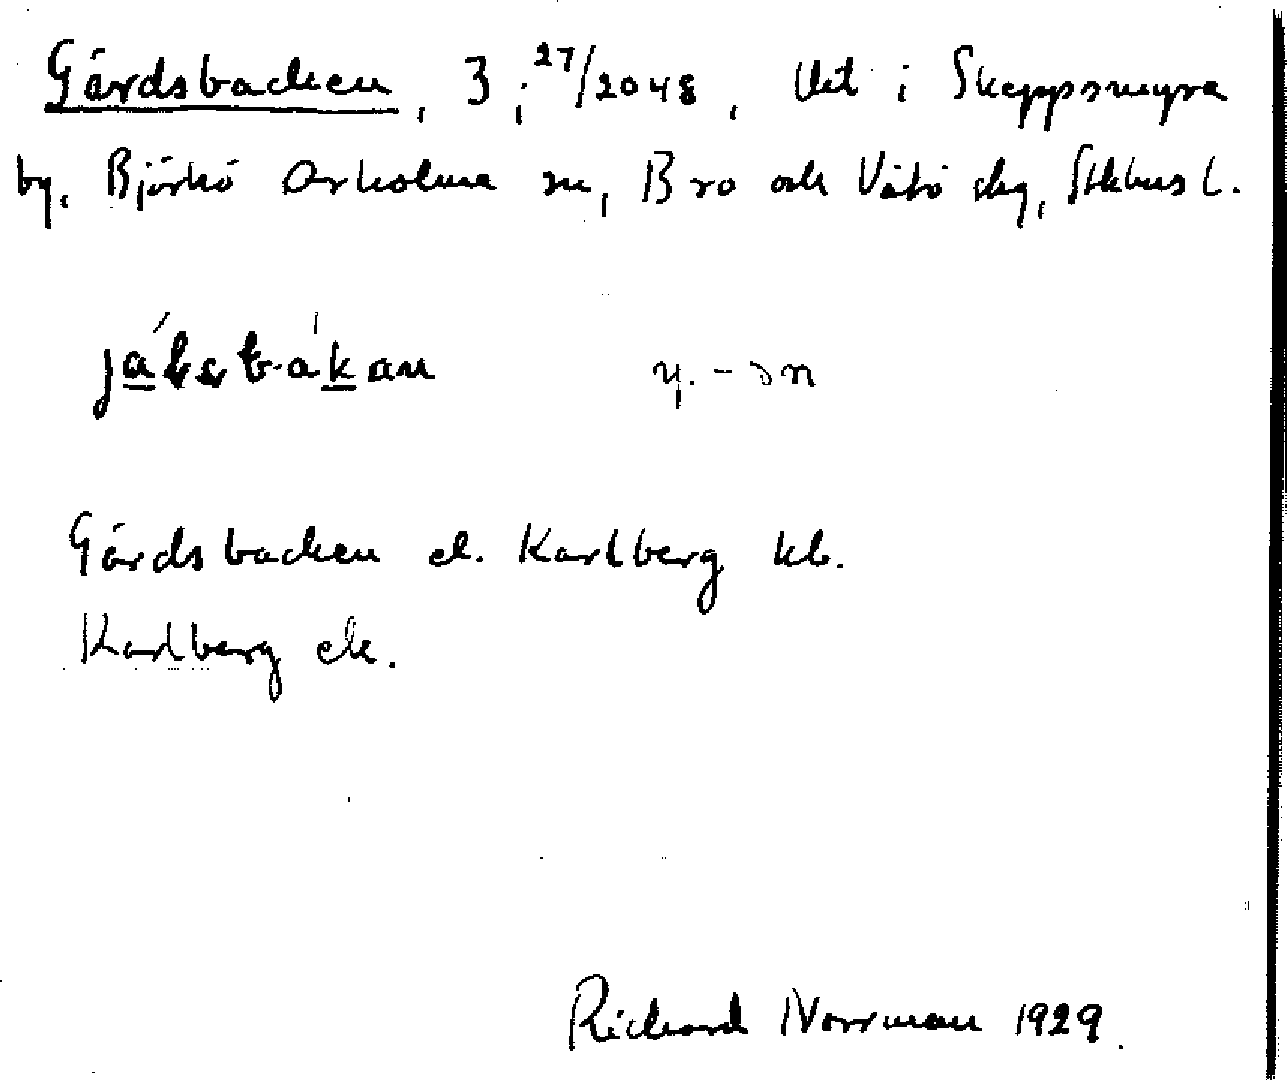 Gärdsbacken, 3; 27/2048, lht i Skeppsmyra
by, Björkö Arholma sn, Bro och Vätö skg, Sthlms l.
y. - ən
Gärdsbacken el. Karlberg kb.
Karlberg ek.
Richard Norrman 1929.